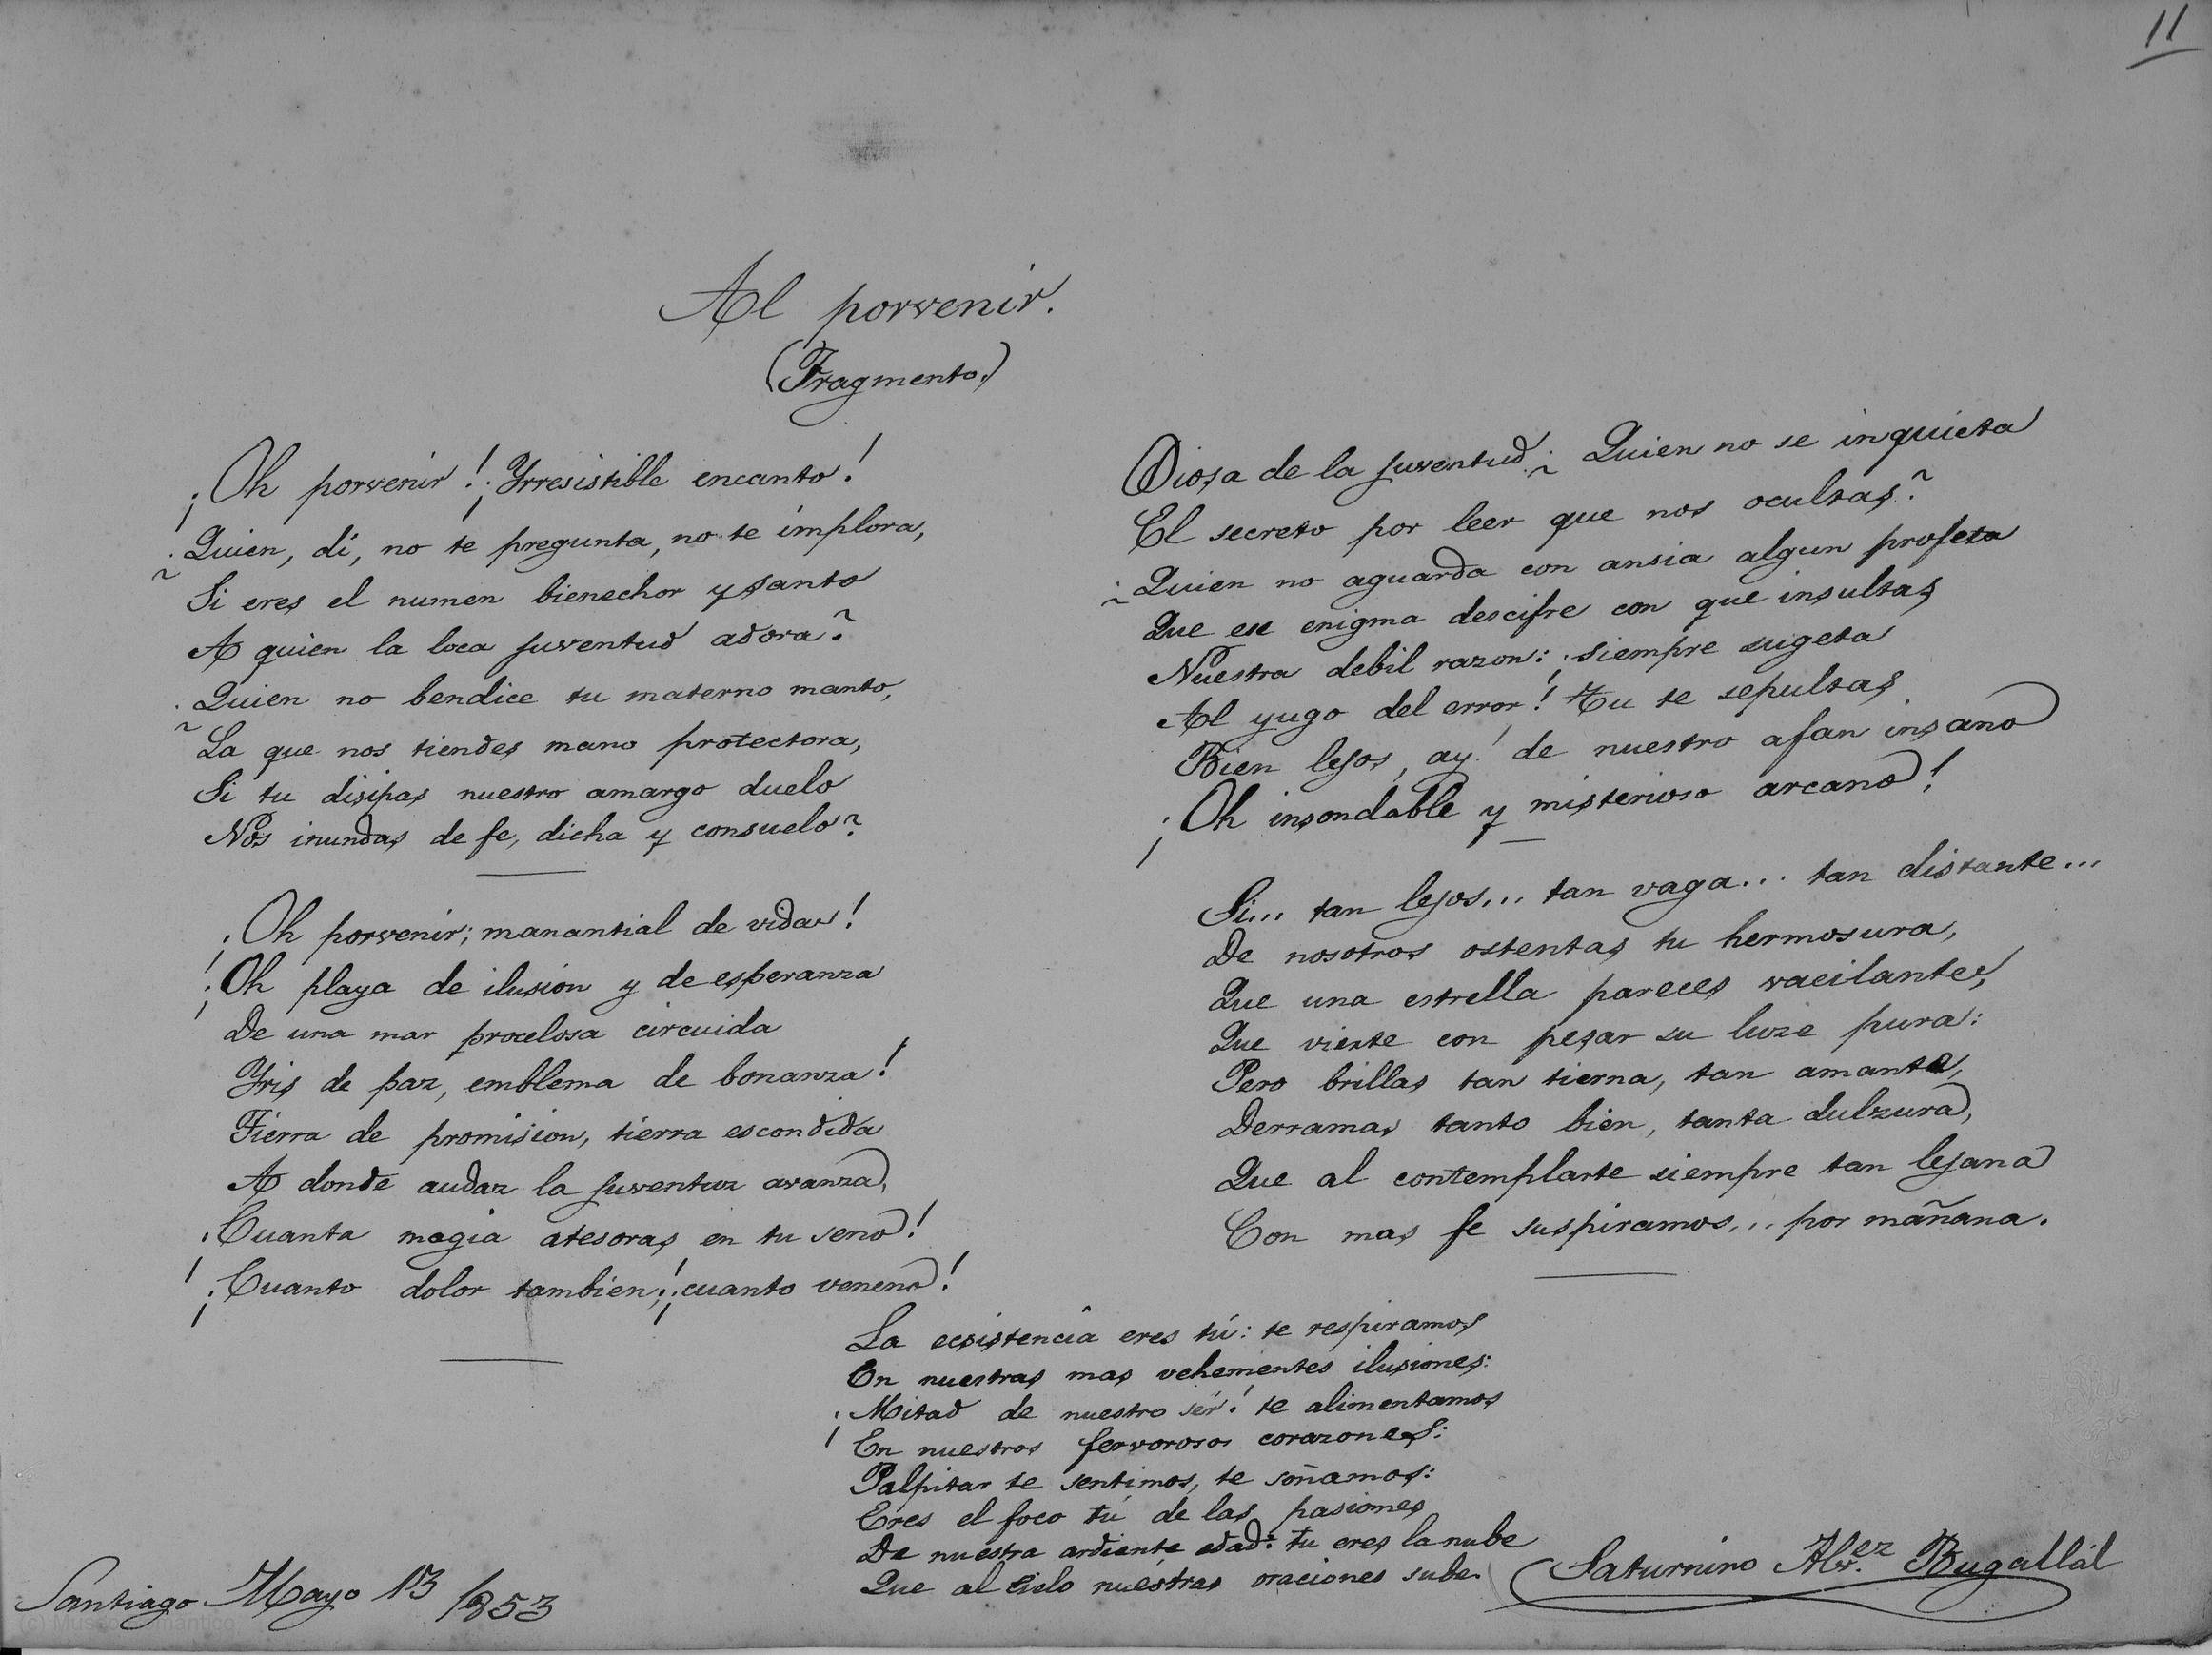 11
Al porvenir.
(Fragmento.)
¡Oh porvenir! ¡Yrresistible encanto!
¿Quien, dí, no te pregunta, no te implora,
Si eres el numen bienechor y santo
A quien la loca juventud adora?
¿Quien no bendice tu materno manto,
La que nos tiendes mano protectora,
Si tu disipas nuestro amargo duelo
Nos inundas de fe, dicha y consuelo?
¡Oh porvenir; manantial de vida!
¡Oh playa de ilusion y de esperanza
De una mar procelosa circuida
Yris de paz, emblema de bonanza!
Tierra de promision, tierra escondida
A donde audaz la juventuz avanza,
¡Cuanta magia atesoras en tu seno!
¡Cuanto dolor tambien! ¡cuanto veneno!
Diosa de la juventud! ¿Quien no se inquieta
El secreto por leer que nos ocultas?
¿Quien no aguarda con ansia algun profeta
Que ese enigma descifre con que insultas
Nuestra debil razon: ¡siempre sugeta
Al yugo del error! Tu te sepultas
Bien lejos, ay! de nuestro afan insano
¡Oh insondable y misterioso arcano!
Si... tan lejos... tan vaga... tan distante...
De nosotros ostentas tu hermosura,
Que una estrella pareces vacilante,
Que vierte con pesar su luze pura:
Pero brillas tan tierna, tan amante,
Derramas tanto bien, tanta dulzura,
Que al contemplarte siempre tan lejana
Con mas fe suspiramos... por mañana.
La ecsistencia eres tú: te respiramos
En nuestras mas vehementes ilusiones:
¡Mitad de nuestro sér! te alimentamos
En nuestros fervorosos corazones:
Palpitar te sentimos, te soñamos:
Eres el foco tú de las pasiones
De nuestra ardiente edad: tu eres la nube
Que al cielo nuestras oraciones sube.
Saturnino Alv.ez Bugallál
Santiago Mayo 13 1853
(c) Museo Romántico